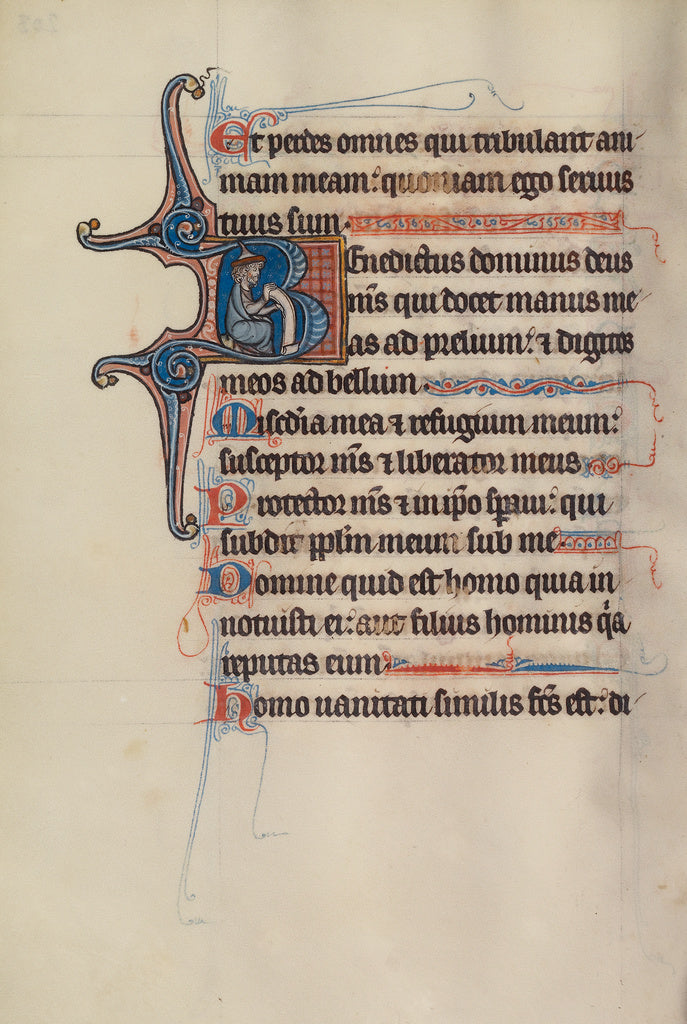 Et perdes omnes qui tribulant ani
mam meam: quoniam ego seruus
tuus sum.
Benedictus dominus deus
mr̄s qui docet manus me
as ad prelium: ⁊ digitos
meos ad bellum.
Misc̄dia mea ⁊ refugium meum:
susceptor ms̄ ⁊ liberator meus
Protector ms̄ ⁊ in ip̄o sp̄aui: qui
subdit pp̄lm meum sub me.
Domine quid est homo quia in
notuisti ei: aut filius hominis qa
reputas eum.
Homo uanitati similis fcs̄ est: di